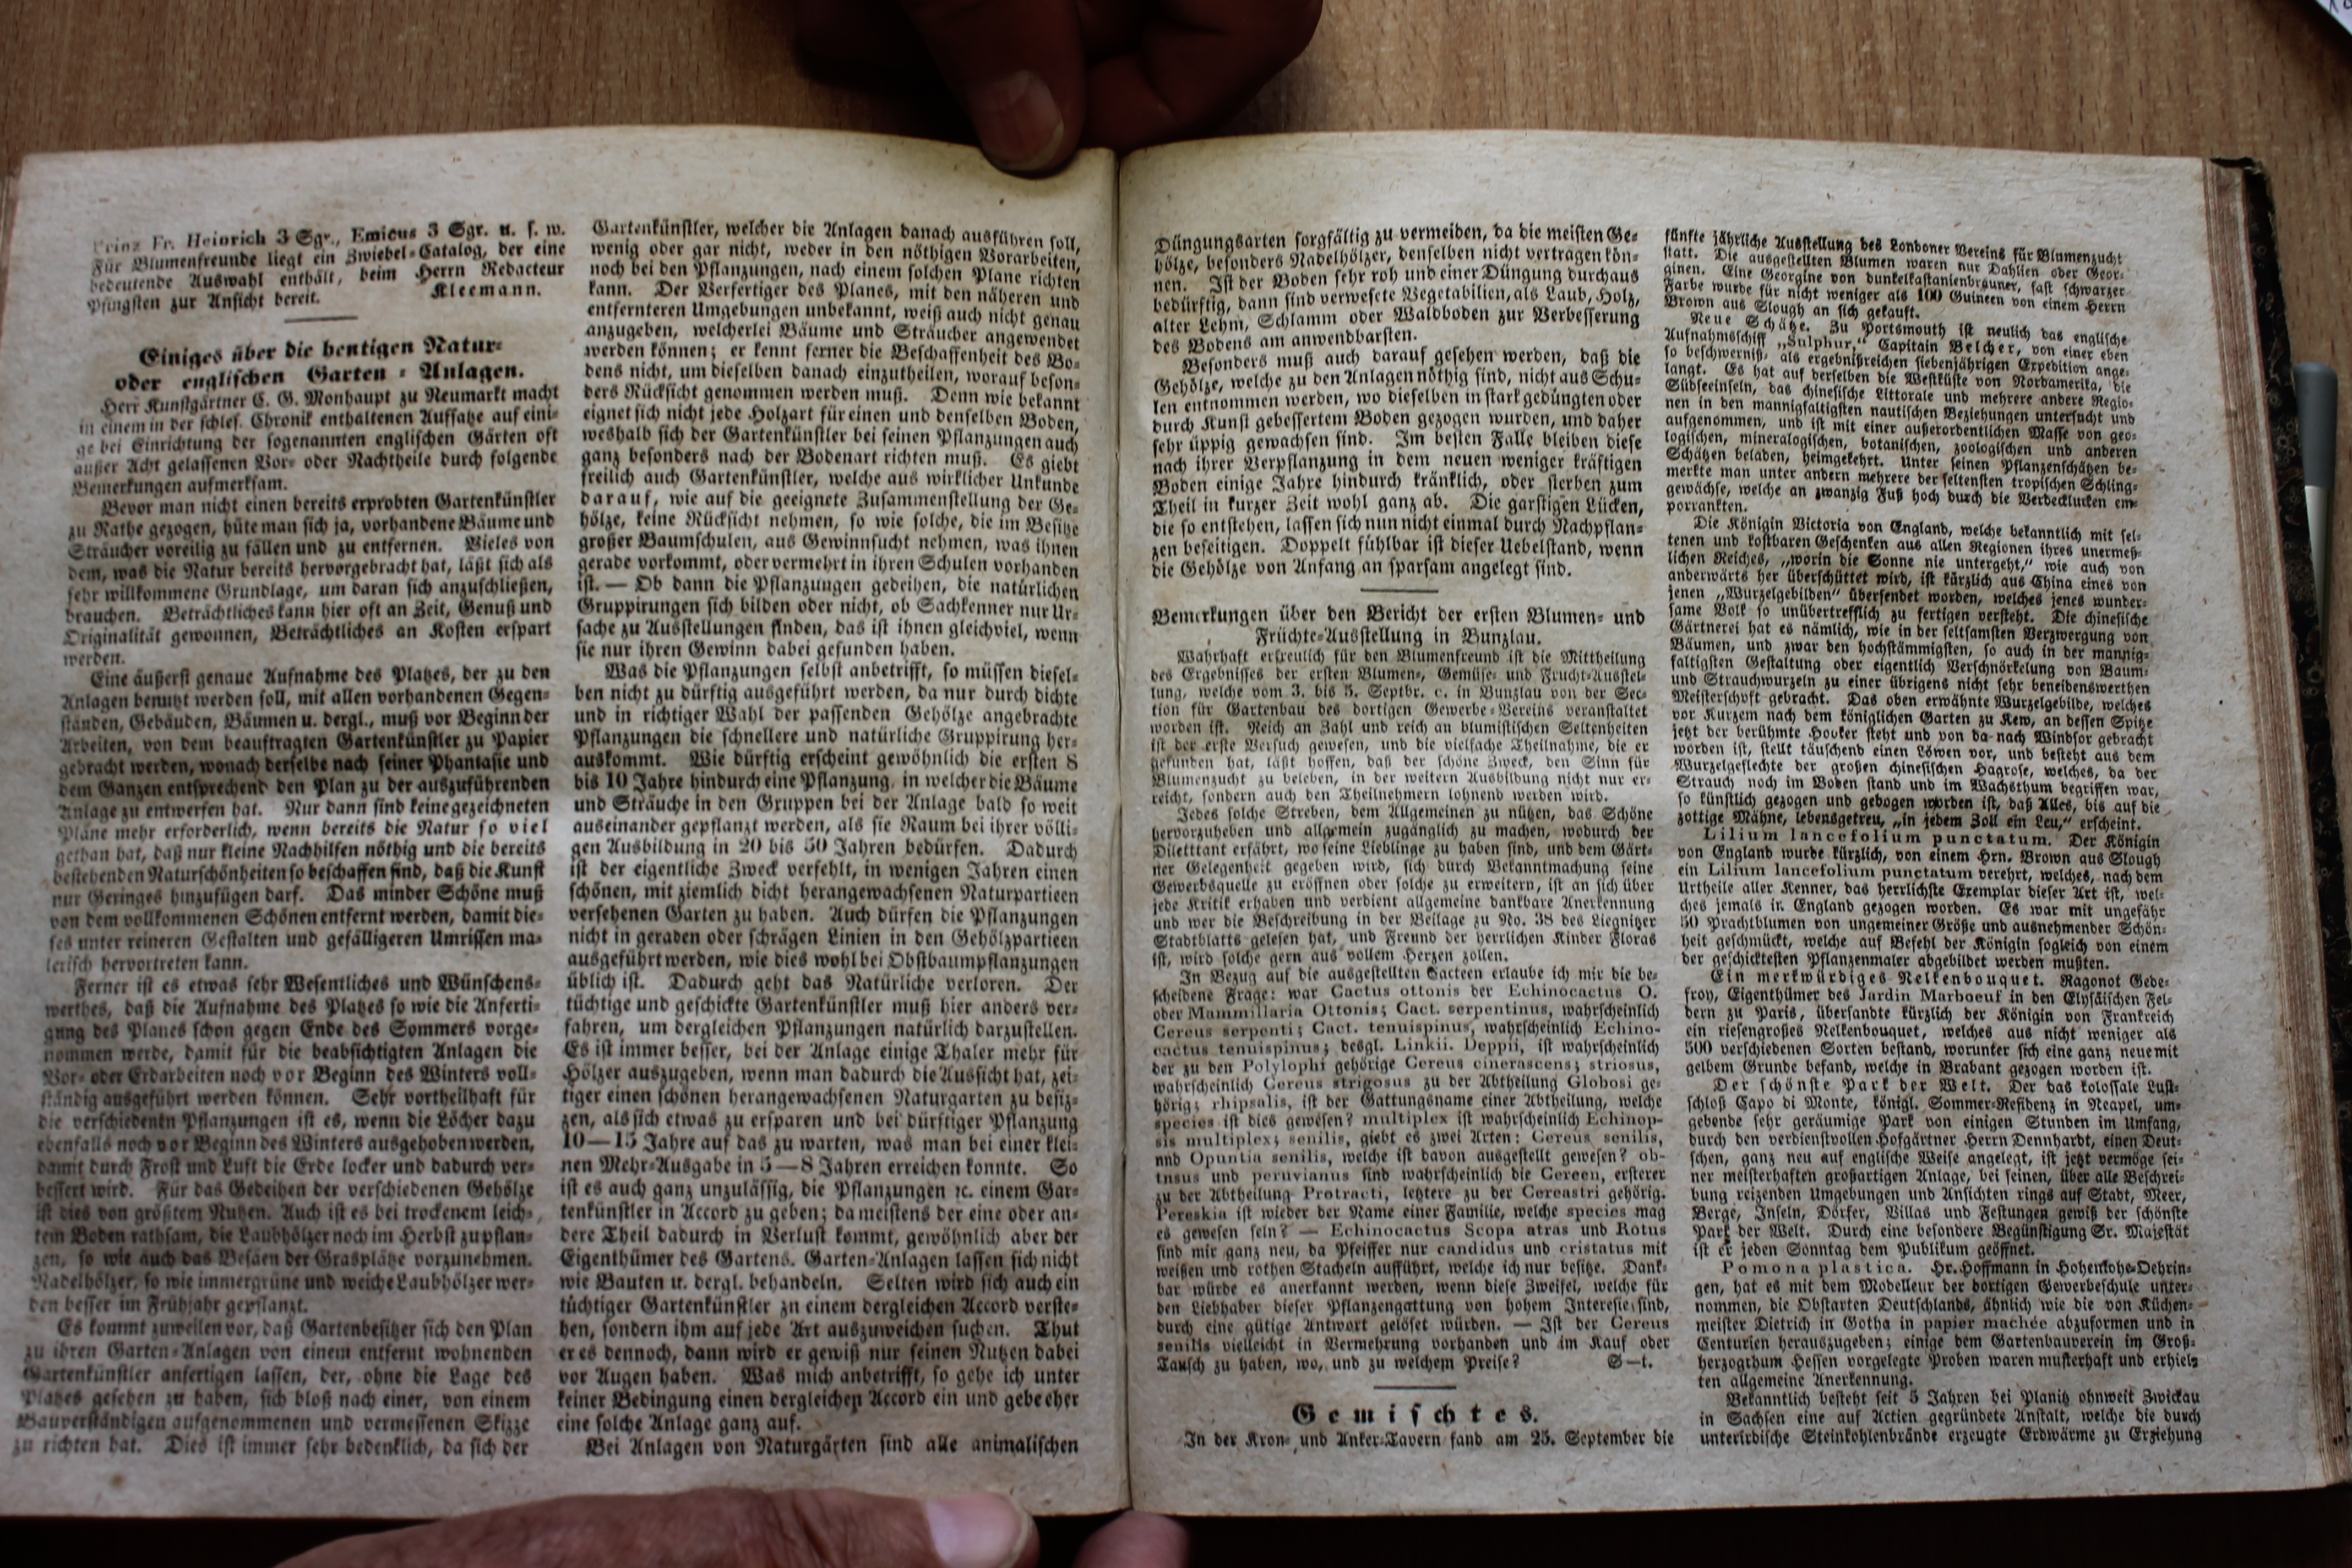 Prinz Fr. Heinrich 3 Sgr., Emicus 3 Sgr. u. s. w.
Für Blumenfreunde liegt ein Zwiebel-Catalog, der eine
bedeutende Auswahl enthält, beim Herrn Redacteur
Pfingsten zur Ansicht bereit. Kleemann.
Einiges über die heutigen Natur-
oder englischen Garten-Anlagen.
Herr Kunstgärtner C. G. Monhaupt zu Neumarkt macht
in einem in der schles. Chronik enthaltenen Aufsatze auf eini-
ge bei Einrichtung der sogenannten englischen Gärten oft
außer Acht gelassenen Vor- oder Nachtheile durch folgende
Bemerkungen aufmerksam.
Bevor man nicht einen bereits erprobten Gartenkünstler
zu Rathe gezogen, hüte man sich ja, vorhandene Bäume und
Sträucher voreilig zu fällen und zu entfernen. Vieles von
dem, was die Natur bereits hervorgebracht hat, läßt sich als
sehr willkommene Grundlage, um daran sich anzuschließen,
brauchen. Beträchtliches kann hier oft an Zeit, Genuß und
Originalität gewonnen, Beträchtliches an Kosten erspart
werden.
Eine äußerst genaue Aufnahme des Platzes, der zu den
Anlagen benutzt werden soll, mit allen vorhandenen Gegen-
ständen, Gebäuden, Bäumen u. dergl., muß vor Beginn der
Arbeiten, von dem beauftragten Gartenkünstler zu Papier
gebracht werden, wonach derselbe nach seiner Phantasie und
dem Ganzen entsprechend den Plan zu der auszuführenden
Anlage zu entwerfen hat. Nur dann sind keine gezeichneten
Pläne mehr erforderlich, wenn bereits die Natur so viel
gethan hat, daß nur kleine Nachhilfen nöthig und die bereits
bestehenden Naturschönheiten so beschaffen sind, daß die Kunst
nur Geringes hinzufügen darf. Das minder Schöne muß
von dem vollkommenen Schönen entfernt werden, damit die-
ses unter reineren Gestalten und gefälligeren Umrissen ma-
lerisch hervortreten kann.
Ferner ist es etwas sehr Wesentliches und Wünschens-
werthes, daß die Aufnahme des Platzes so wie die Anferti-
gung des Planes schon gegen Ende des Sommers vorge-
nommen werde, damit für die beabsichtigten Anlagen die
Vor- oder Erdarbeiten noch vor Beginn des Winters voll-
ständig ausgeführt werden können. Sehr vortheilhaft für
die verschiedenen Pflanzungen ist es, wenn die Löcher dazu
ebenfalls noch vor Beginn des Winters ausgehoben werden,
damit durch Frost und Luft die Erde locker und dadurch ver-
bessert wird. Für das Gedeihen der verschiedenen Gehölze
ist dies von größtem Nutzen. Auch ist es bei trockenem leich-
tem Boden rathsam, die Laubhölzer noch im Herbst zu pflan-
zen, so wie auch das Besäen der Grasplätze vorzunehmen.
Nadelhölzer, so wie immergrüne und weiche Laubhölzer wer-
den besser im Frühjahr gepflanzt.
Es kommt zuweilen vor, daß Gartenbesitzer sich den Plan
zu ihren Garten-Anlagen von einem entfernt wohnenden
Gartenkünstler anfertigen lassen, der, ohne die Lage des
Platzes gesehen zu haben, sich bloß nach einer, von einem
Bauverständigen aufgenommenen und vermessenen Skizze
zu richten hat. Dies ist immer sehr bedenklich, da sich der
Gartenkünstler, welcher die Anlagen danach ausführen soll,
wenig oder gar nicht, weder in den nöthigen Vorarbeiten,
noch bei den Pflanzungen, nach einem solchen Plane richten
kann. Der Verfertiger des Planes, mit den näheren und
entfernteren Umgebungen unbekannt, weiß auch nicht genau
anzugeben, welcherlei Bäume und Sträucher angewendet
werden können; er kennt ferner die Beschaffenheit des Bo-
dens nicht, um dieselben danach einzutheilen, worauf beson-
ders Rücksicht genommen werden muß. Denn wie bekannt
eignet sich nicht jede Holzart für einen und denselben Boden,
weshalb sich der Gartenkünstler bei seinen Pflanzungen auch
ganz besonders nach der Bodenart richten muß. Es giebt
freilich auch Gartenkünstler, welche aus wirklicher Unkunde
darauf, wie auf die geeignete Zusammenstellung der Ge-
hölze, keine Rücksicht nehmen, so wie solche, die im Besitze
großer Baumschulen, aus Gewinnsucht nehmen, was ihnen
gerade vorkommt, oder vermehrt in ihren Schulen vorhanden
ist. — Ob dann die Pflanzungen gedeihen, die natürlichen
Gruppirungen sich bilden oder nicht, ob Sachkenner nur Ur-
sache zu Ausstellungen finden, das ist ihnen gleichviel, wenn
sie nur ihren Gewinn dabei gefunden haben.
Was die Pflanzungen selbst anbetrifft, so müssen diesel-
ben nicht zu dürftig ausgeführt werden, da nur durch dichte
und in richtiger Wahl der passenden Gehölze angebrachte
Pflanzungen die schnellere und natürliche Gruppirung her-
auskommt. Wie dürftig erscheint gewöhnlich die ersten 8
bis 10 Jahre hindurch eine Pflanzung, in welcher die Bäume
und Sträuche in den Gruppen bei der Anlage bald so weit
auseinander gepflanzt werden, als sie Raum bei ihrer völli-
gen Ausbildung in 20 bis 50 Jahren bedürfen. Dadurch
ist der eigentliche Zweck verfehlt, in wenigen Jahren einen
schönen, mit ziemlich dicht herangewachsenen Naturpartieen
versehenen Garten zu haben. Auch dürfen die Pflanzungen
nicht in geraden oder schrägen Linien in den Gehölzpartieen
ausgeführt werden, wie dies wohl bei Obstbaumpflanzungen
üblich ist. Dadurch geht das Natürliche verloren. Der
tüchtige und geschickte Gartenkünstler muß hier anders ver-
fahren, um dergleichen Pflanzungen natürlich darzustellen.
Es ist immer besser, bei der Anlage einige Thaler mehr für
Hölzer auszugeben, wenn man dadurch die Aussicht hat, zei-
tiger einen schönen herangewachsenen Naturgarten zu besiz-
zen, als sich etwas zu ersparen und bei dürftiger Pflanzung
10—15 Jahre auf das zu warten, was man bei einer klei-
nen Mehr-Ausgabe in 5—8 Jahren erreichen konnte. So
ist es auch ganz unzulässig, die Pflanzungen ꝛc. einem Gar-
tenkünstler in Accord zu geben; da meistens der eine oder an-
dere Theil dadurch in Verlust kommt, gewöhnlich aber der
Eigenthümer des Gartens. Garten-Anlagen lassen sich nicht
wie Bauten u. dergl. behandeln. Selten wird sich auch ein
tüchtiger Gartenkünstler zu einem dergleichen Accord verste-
hen, sondern ihm auf jede Art auszuweichen suchen. Thut
er es dennoch, dann wird er gewiß nur seinen Nutzen dabei
vor Augen haben. Was mich anbetrifft, so gehe ich unter
keiner Bedingung einen dergleichen Accord ein und gebe eher
eine solche Anlage ganz auf.
Bei Anlagen von Naturgärten sind alle animalischen
Düngungsarten sorgfältig zu vermeiden, da die meisten Ge-
hölze, besonders Nadelhölzer, denselben nicht vertragen kön-
nen. Ist der Boden sehr roh und einer Düngung durchaus
bedürftig, dann sind verwesete Vegetabilien, als Laub, Holz,
alter Lehm, Schlamm oder Waldboden zur Verbesserung
des Bodens am anwendbarsten.
Besonders muß auch darauf gesehen werden, daß die
Gehölze, welche zu den Anlagen nöthig sind, nicht aus Schu-
len entnommen werden, wo dieselben in stark gedüngten oder
durch Kunst gebessertem Boden gezogen wurden, und daher
sehr üppig gewachsen sind. Im besten Falle bleiben diese
nach ihrer Verpflanzung in dem neuen weniger kräftigen
Boden einige Jahre hindurch kränklich, oder sterben zum
Theil in kurzer Zeit wohl ganz ab. Die garstigen Lücken,
die so entstehen, lassen sich nun nicht einmal durch Nachpflan-
zen beseitigen. Doppelt fühlbar ist dieser Uebelstand, wenn
die Gehölze von Anfang an sparsam angelegt sind.
Bemerkungen über den Bericht der ersten Blumen- und
Früchte-Ausstellung in Bunzlau.
Wahrhaft erfreulich für den Blumenfreund ist die Mittheilung
des Ergebnisses der ersten Blumen-, Gemüse- und Frucht-Ausstel-
lung, welche vom 3. bis 5. Septbr. c. in Bunzlau von der Sec-
tion für Gartenbau des dortigen Gewerbe-Vereins veranstaltet
worden ist. Reich an Zahl und reich an blumistischen Seltenheiten
ist der erste Versuch gewesen, und die vielfache Theilnahme, die er
gefunden hat, läßt hoffen, daß der schöne Zweck, den Sinn für
Blumenzucht zu beleben, in der weitern Ausbildung nicht nur er-
reicht, sondern auch den Theilnehmern lohnend werden wird.
Jedes solche Streben, dem Allgemeinen zu nützen, das Schöne
hervorzuheben und allgemein zugänglich zu machen, wodurch der
Diletttant erfährt, wo seine Lieblinge zu haben sind, und dem Gärt-
ner Gelegenheit gegeben wird, sich durch Bekanntmachung seine
Gewerbsquelle zu eröffnen oder solche zu erweitern, ist an sich über
jede Kritik erhaben und verdient allgemeine dankbare Anerkennung
und wer die Beschreibung in der Beilage zu No. 38 des Liegnitzer
Stadtblatts gelesen hat, und Freund der herrlichen Kinder Floras
ist, wird solche gern aus vollem Herzen zollen.
In Bezug auf die ausgestellten Cacteen erlaube ich mir die be-
scheidene Frage: war Cactus ottonis der Echinocactus O.
oder Mammillaria Ottonis; Cact. serpentinus, wahrscheinlich
Cereus serpenti; Cact. tenuispinus, wahrscheinlich Echino-
cactus tenuispinus; desgl. Linkii. Deppii, ist wahrscheinlich
der zu den Polylophi gehörige Cereus cinerascens; striosus,
wahrscheinlich Cereus strigosus zu der Abtheilung Globosi ge-
hörig; rhipsalis, ist der Gattungsname einer Abtheilung, welche
species ist dies gewesen? multiplex ist wahrscheinlich Echinop-
sis multiplex; senilis, giebt es zwei Arten: Cereus senilis,
nnd Opuntia senilis, welche ist davon ausgestellt gewesen? ob-
tnsus und peruvianus sind wahrscheinlich die Cereen, ersterer
zu der Abtheilung Protracti, letztere zu der Cereastri gehörig.
Pereskia ist wieder der Name einer Familie, welche species mag
es gewesen sein? — Echinocactus Scopa atras und Rotus
sind mir ganz neu, da Pfeiffer nur candidus und cristatus mit
weißen und rothen Stacheln aufführt, welche ich nur besitze. Dank-
bar würde es anerkannt werden, wenn diese Zweifel, welche für
den Liebhaber dieser Pflanzengattung von hohem Interesse sind,
durch eine gütige Antwort gelöset würden. — Ist der Cereus
senilis vielleicht in Vermehrung vorhanden und im Kauf oder
Tausch zu haben, wo, und zu welchem Preise? S—t.
Gemischtes.
In der Kron- und Anker-Tavern fand am 25. September die
fünfte jährliche Ausstellung des Londoner Vereins für Blumenzucht
statt. Die ausgestellten Blumen waren nur Dahlien oder Geor-
ginen. Eine Georgine von dunkelkastanienbrauner, fast schwarzer
Farbe wurde für nicht weniger als 100 Guineen von einem Herrn
Brown aus Slough an sich gekauft.
Neue Schätze. Zu Portsmouth ist neulich das englische
Aufnahmsschiff „Sulphur,“ Capitain Belcher, von einer eben
so beschwerniß- als ergebnißreichen siebenjährigen Expedition ange-
langt. Es hat auf derselben die Westküste von Nordamerika, die
Südseeinseln, das chinesische Littorale und mehrere andere Regio-
nen in den mannigfaltigsten nautischen Beziehungen untersucht und
aufgenommen, und ist mit einer außerordentlichen Masse von geo-
logischen, mineralogischen, botanischen, zoologischen und anderen
Schätzen beladen, heimgekehrt. Unter seinen Pflanzenschätzen be-
merkte man unter andern mehrere der seltensten tropischen Schling-
gewächse, welche an zwanzig Fuß hoch durch die Verdecklucken em-
porrankten.
Die Königin Victoria von England, welche bekanntlich mit sel-
tenen und kostbaren Geschenken aus allen Regionen ihres unermeß-
lichen Reiches, „worin die Sonne nie untergeht,“ wie auch von
anderwärts her überschüttet wird, ist kürzlich aus China eines von
jenen „Wurzelgebilden“ übersendet worden, welches jenes wunder-
same Volk so unübertrefflich zu fertigen versteht. Die chinesische
Gärtnerei hat es nämlich, wie in der seltsamsten Verzwergung von
Bäumen, und zwar den hochstämmigsten, so auch in der mannig-
faltigsten Gestaltung oder eigentlich Verschnörkelung von Baum-
und Strauchwurzeln zu einer übrigens nicht sehr beneidenswerthen
Meisterschaft gebracht. Das oben erwähnte Wurzelgebilde, welches
vor Kurzem nach dem königlichen Garten zu Kew, an dessen Spitze
jetzt der berühmte Hooker steht und von da nach Windsor gebracht
worden ist, stellt täuschend einen Löwen vor, und besteht aus dem
Wurzelgeflechte der großen chinesischen Hagrose, welches, da der
Strauch noch im Boden stand und im Wachsthum begriffen war,
so künstlich gezogen und gebogen worden ist, daß Alles, bis auf die
zottige Mähne, lebensgetreu, „in jedem Zoll ein Leu,“ erscheint.
Lilium lancefolium punctatum. Der Königin
von England wurde kürzlich, von einem Hrn. Brown aus Slough
ein Lilium lancefolium punctatum verehrt, welches, nach dem
Urtheile aller Kenner, das herrlichste Exemplar dieser Art ist, wel-
ches jemals in England gezogen worden. Es war mit ungefähr
50 Prachtblumen von ungemeiner Größe und ausnehmender Schön-
heit geschmückt, welche auf Befehl der Königin sogleich von einem
der geschicktesten Pflanzenmaler abgebildet werden mußten.
Ein merkwürdiges Nelkenbouquet. Ragonot Gode-
froy, Eigenthümer des Jardin Marboeuf in den Elysäischen Fel-
dern zu Paris, übersandte kürzlich der Königin von Frankreich
ein riesengroßes Nelkenbouquet, welches aus nicht weniger als
500 verschiedenen Sorten bestand, worunter sich eine ganz neue mit
gelbem Grunde befand, welche in Brabant gezogen worden ist.
Der schönste Park der Welt. Der das kolossale Lust-
schloß Capo di Monte, königl. Sommer-Residenz in Neapel, um-
gebende sehr geräumige Park von einigen Stunden im Umfang,
durch den verdienstvollen Hofgärtner Herrn Dennhardt, einen Deut-
schen, ganz neu auf englische Weise angelegt, ist jetzt vermöge sei-
ner meisterhaften großartigen Anlage, bei seinen, über alle Beschrei-
bung reizenden Umgebungen und Ansichten rings auf Stadt, Meer,
Berge, Inseln, Dörfer, Villas und Festungen gewiß der schönste
Park der Welt. Durch eine besondere Begünstigung Sr. Majestät
ist er jeden Sonntag dem Publikum geöffnet.
Pomona plastica. Hr. Hoffmann in Hohenlohe-Oehrin-
gen, hat es mit dem Modelleur der dortigen Gewerbeschule unter-
nommen, die Obstarten Deutschlands, ähnlich wie die von Küchen-
meister Dietrich in Gotha in papier machée abzuformen und in
Centurien herauszugeben; einige dem Gartenbauverein im Groß-
herzogthum Hessen vorgelegte Proben waren musterhaft und erhiel-
ten allgemeine Anerkennung.
Bekanntlich besteht seit 5 Jahren bei Planitz ohnweit Zwickau
in Sachsen eine auf Actien gegründete Anstalt, welche die durch
unterirdische Steinkohlenbrände erzeugte Erdwärme zu Erziehung